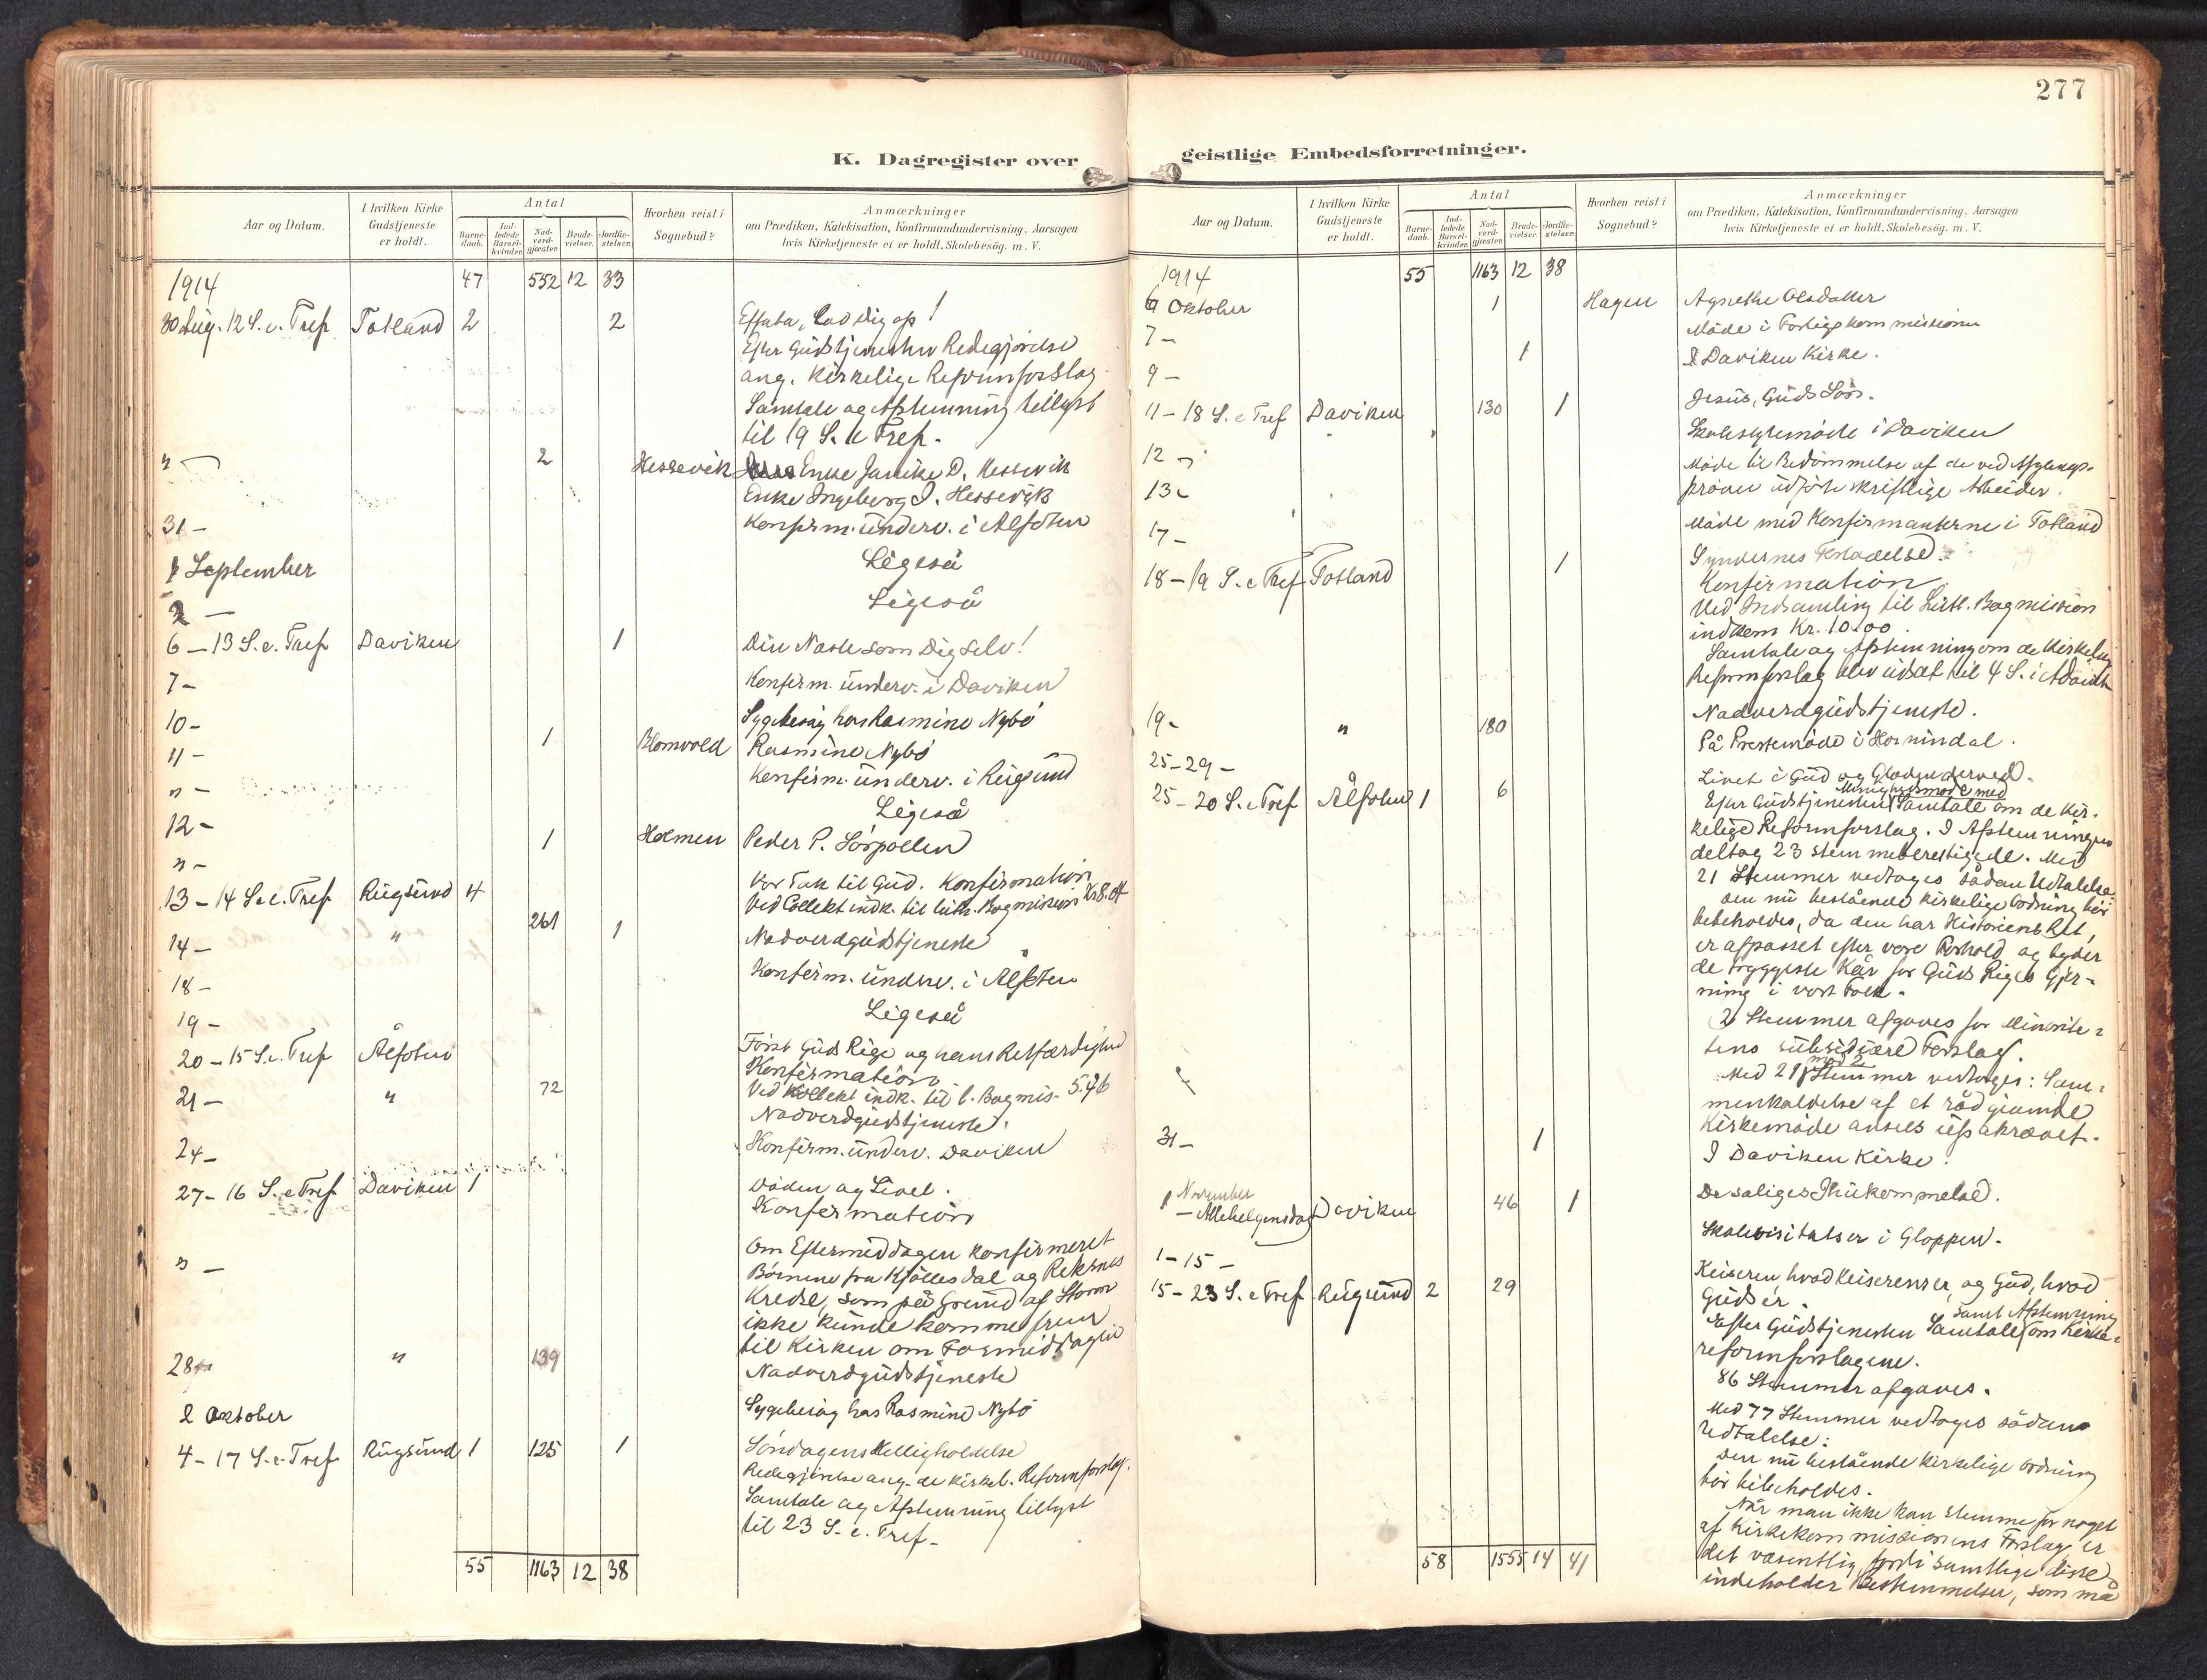 277
K. Dagregister over
Aar og Datum.
I hvilken Kirke Gudstjeneste er holdt.
Antal
Barnedaab.
Indledede Barselkvinder.
Nadverdgjæster.
Brudevielser.
Jordfæstelser.
Hvorhen reist i Sognebud?
Anmærkninger
om Prædiken, Katekisation, Konfirmandundervisning, Aarsagen
hvis Kirketjeneste ei er holdt, Skolebesøg. m. V.
1914 47 552 12 33
30 Aug. 12 S. e. Tref Totland 2 2 Effata, lad dig op!
Efter Gudstjenesten Redegjørelse
ang. kirkelige Reformforslag.
Samtale og Afstemning tillyst
til 19 S. e Tref.
" 2 Hessevik Enke Janike D. Hessevik
Enke Ingeborg J. Hessevik
31 - Konfirm. underv. i Ålfoten
1 September Ligeså
2 - Ligeså
6 - 13 S. e. Tref Daviken 1 Din Næste som Dig selv!
7 - Konfirm. underv. i Daviken
10 - Sygebesøg hos Rasmine Nybø
11 - 1 Blomvold Rasmine Nybø
" - Konfirm. underv. i Rugsund
12 - Ligeså
" - 1 Holmen Peder P. Sørpollen
13 - 14 S. e. Tref Rugsund 4 Vor Tak til Gud. Konfirmation
Ved Collekt indk. til luth. Bogmission Kr 8.
14 - " 261 1 Nadverdgudstjeneste
18 - Konfirm. underv. i Ålfoten
19 - Ligeså
20 - 15 S. e. Tref Ålfoten Først Guds Rige og hans Retfærdighed
Konfirmation
Ved Kollekt indk. til l. Bogmis. 5.76
21 - " 72 Nadverdgudstjeneste.
24 - Konfirm. underv. Daviken
27 - 16 S. e Tref Daviken 1 Døden og Livet.
Konfirmation
" - Om Eftermiddagen konfirmeret
Børnene fra Kjøllesdal og Reksnes
Kreds, som på Grund af Storm
ikke kunde komme frem
til Kirken om Formiddagen
28 " 139 Nadverdgudstjeneste
2 Oktober Sygebesøg hos Rasmine Nybø
4 - 17 S. e. Tref Rugsund 1 125 1 Søndagens Helligholdelse
Redegjørelse ang. de kirkel. Reformforslag.
Samtale og Afstemning tillyst
til 23 S. e. Tref.
55 1163 12 38
geistlige Embedsforretninger.
Aar og Datum.
I hvilken Kirke Gudstjeneste er holdt.
Antal
Barnedaab.
Indledede Barselkvinder.
Nadverdgjæster.
Brudevielser.
Jordfæstelser.
Hvorhen reist i Sognebud?
Anmærkninger
om Prædiken, Katekisation, Konfirmandundervisning, Aarsagen
hvis Kirketjeneste ei er holdt, Skolebesøg. m. V.
1914 55 1163 12 38
6 Oktober 1 Hagen Agnethe Olsdatter
7 - Møde i Forligskommissionen
9 - 1 I Daviken Kirke.
11 - 18 S. e Tref Daviken 130 1 Jesus, Guds Søn.
12 - Skolestyremøde i Daviken
13 - Møde til Bedømmelse af de ved Afgangs-
prøven udførte skriftlige Arbeider.
17 - Møde med Konfirmanterne i Totland
18 - 19 S. e Tref Totland 1 Syndernes Forladelse.
Konfirmation.
Ved Indsamling til Luth. Bogmission
indkom Kr. 10.00.
Samtale og Afstemning om de kirkelig
Reformforslag blev udsat til 4 S. i Advent
19 - " 180 Nadverdgudstjeneste.
25-29 - På Prestemøde i Hornindal.
25 - 20 S. e Tref Ålfoten 1 6 Livet i Gud og Glæden derved.
Efter Gudstjenesten Menighedsmøde med Samtale om de kir-
kelige Reformforslag. I Afstemningen
deltog 23 stemmeberettigede. Med
21 Stemmer vedtoges sådan Udtalelse:
Den nu bestående kirkelige Ordning bør
bebeholdes, da den har Historiens Ret,
er afpasset efter vore Forhold og byder
de tryggeste Kår for Guds Riges Gjer-
ning i vort Folk.
2 Stemmer afgaves for Minorite-
tens subsidiære Forslag.
Med 21 mod 2 Stemmer vedtoges: Sam-
menkaldelse af et rådgivende
Kirkemøde ansees upåkrævet.
31 - 1 I Daviken Kirke.
1 November - Allehelgensdag Daviken 46 1 De saliges Ihukommelse.
1-15 - Skolevisitatser i Gloppen.
15 - 23 S. e Tref Rugsund 2 29 Keiseren hvad Keiserens er, og Gud, hvad
Guds er.
Efter Gudstjenesten Samtale samt Afstemning om Kirke-
reformforslagene.
86 Stemmer afgaves.
Med 77 Stemmer vedtoges sådan
Udtalelse:
Den nu bestående kirkelige Ordning
bør bibeholdes.
Når man ikke kan stemme for noget
af Kirkekommissionens Forslag, er
det væsentlig fordi samtlige disse
indeholder Bestemmelser, som må
58 1555 14 41